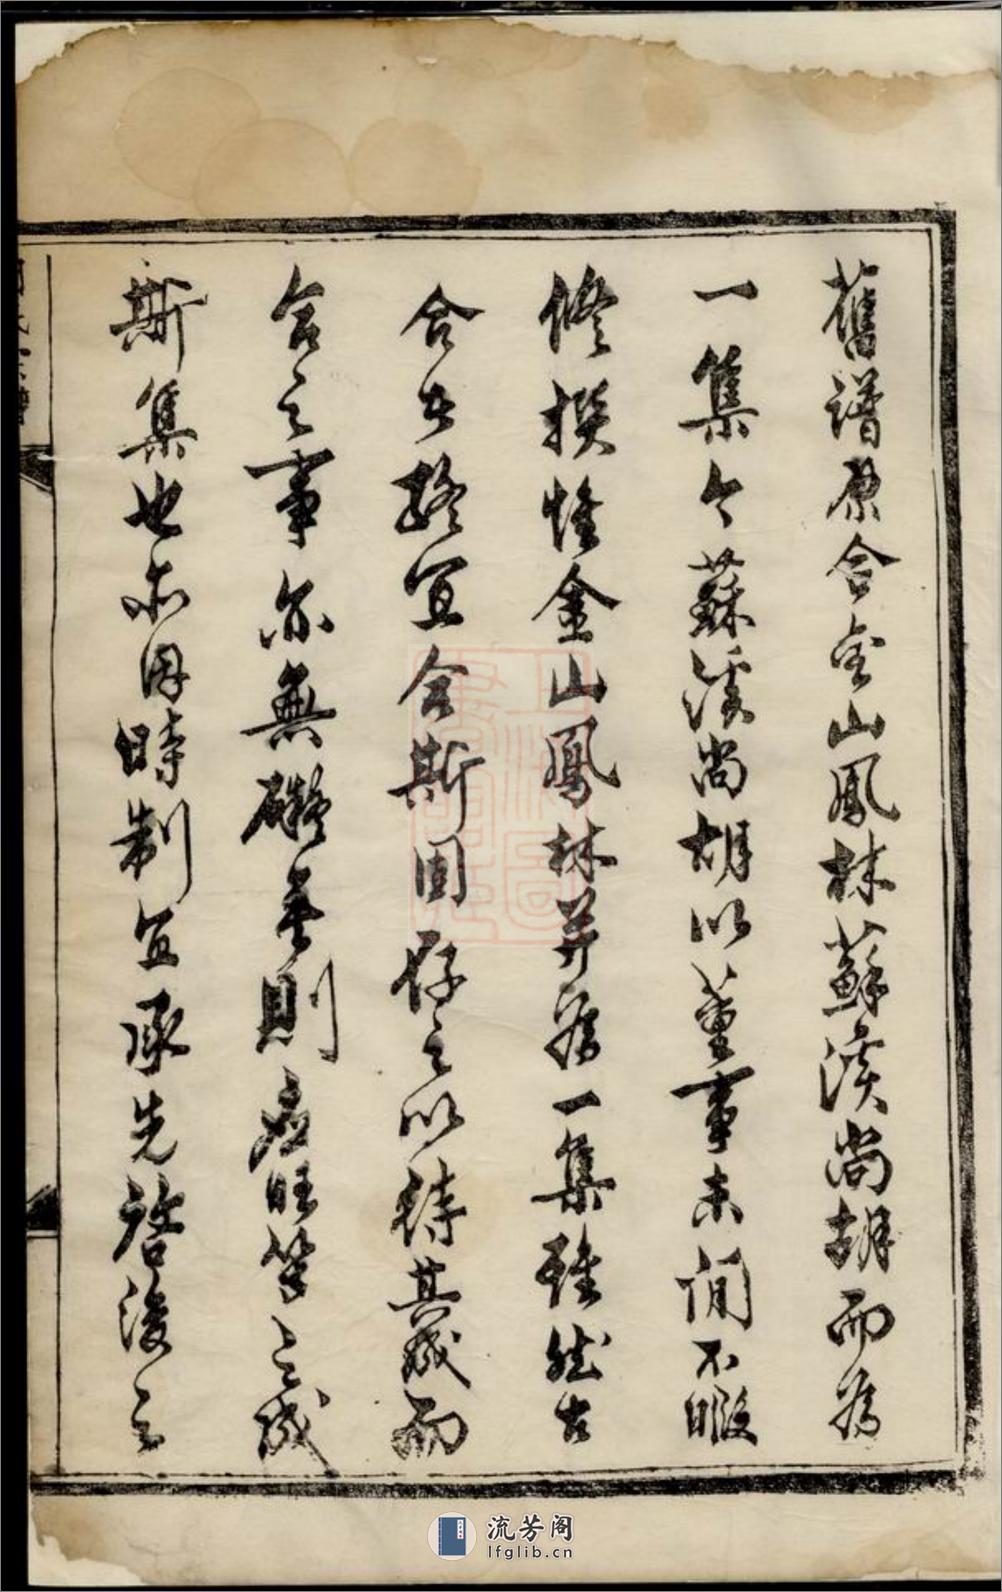 舊譜原合金山鳳林蘇溪尚胡而為
一集今蘇溪尚胡以董事未閒不暇
修撰惟金山鳳林并為一集雖然古
合者終宜合斯固存之以待其成而
合之事亦無礙矣則應旺等之成
斯集也亦因時制宜承先啓後之
流芳阁
lfglib.cn